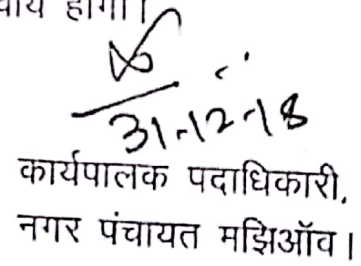 होगा।
31-12-18
कार्यपालक पदाधिकारी,
नगर पंचायत मझिऑव।